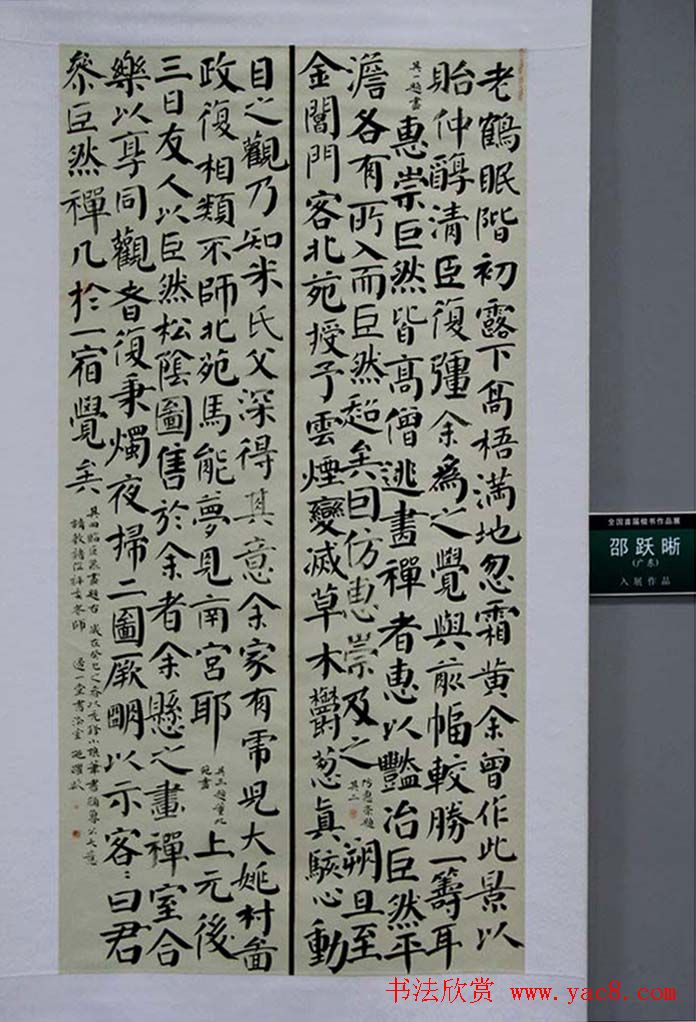 老鶴眠階初露下高梧滿地忽霜黃余曾作此景以
貽仲醇清臣復彊余為之覺與前幅較勝一籌耳
其一題畫
惠崇巨然皆高僧逃畫禪者惠以豔冶巨然平
澹各有所入而巨然超矣因仿惠崇及之
仿惠崇題
其二
朔旦至
金閶門客北苑授予雲煙變滅草木鬱蔥真駭心動
目之觀乃知米氏父深得其意余家有虎兒大姚村圖
政復相類不師北苑馬能夢見南宮耶
其三題董北
苑畫
上元後
三日友人以巨然松陰圖售於余者余懸之畫禪室合
樂以享同觀者復秉燭夜掃二圖厥明以示客：曰君
參巨然禪几於一宿覺矣
其四臨巨然畫題右 歲在癸巳之春以
請教諸位
全国首届楷书作品展
邵跃晰
(广东)
入展作品
书法欣赏 www.yac8.com